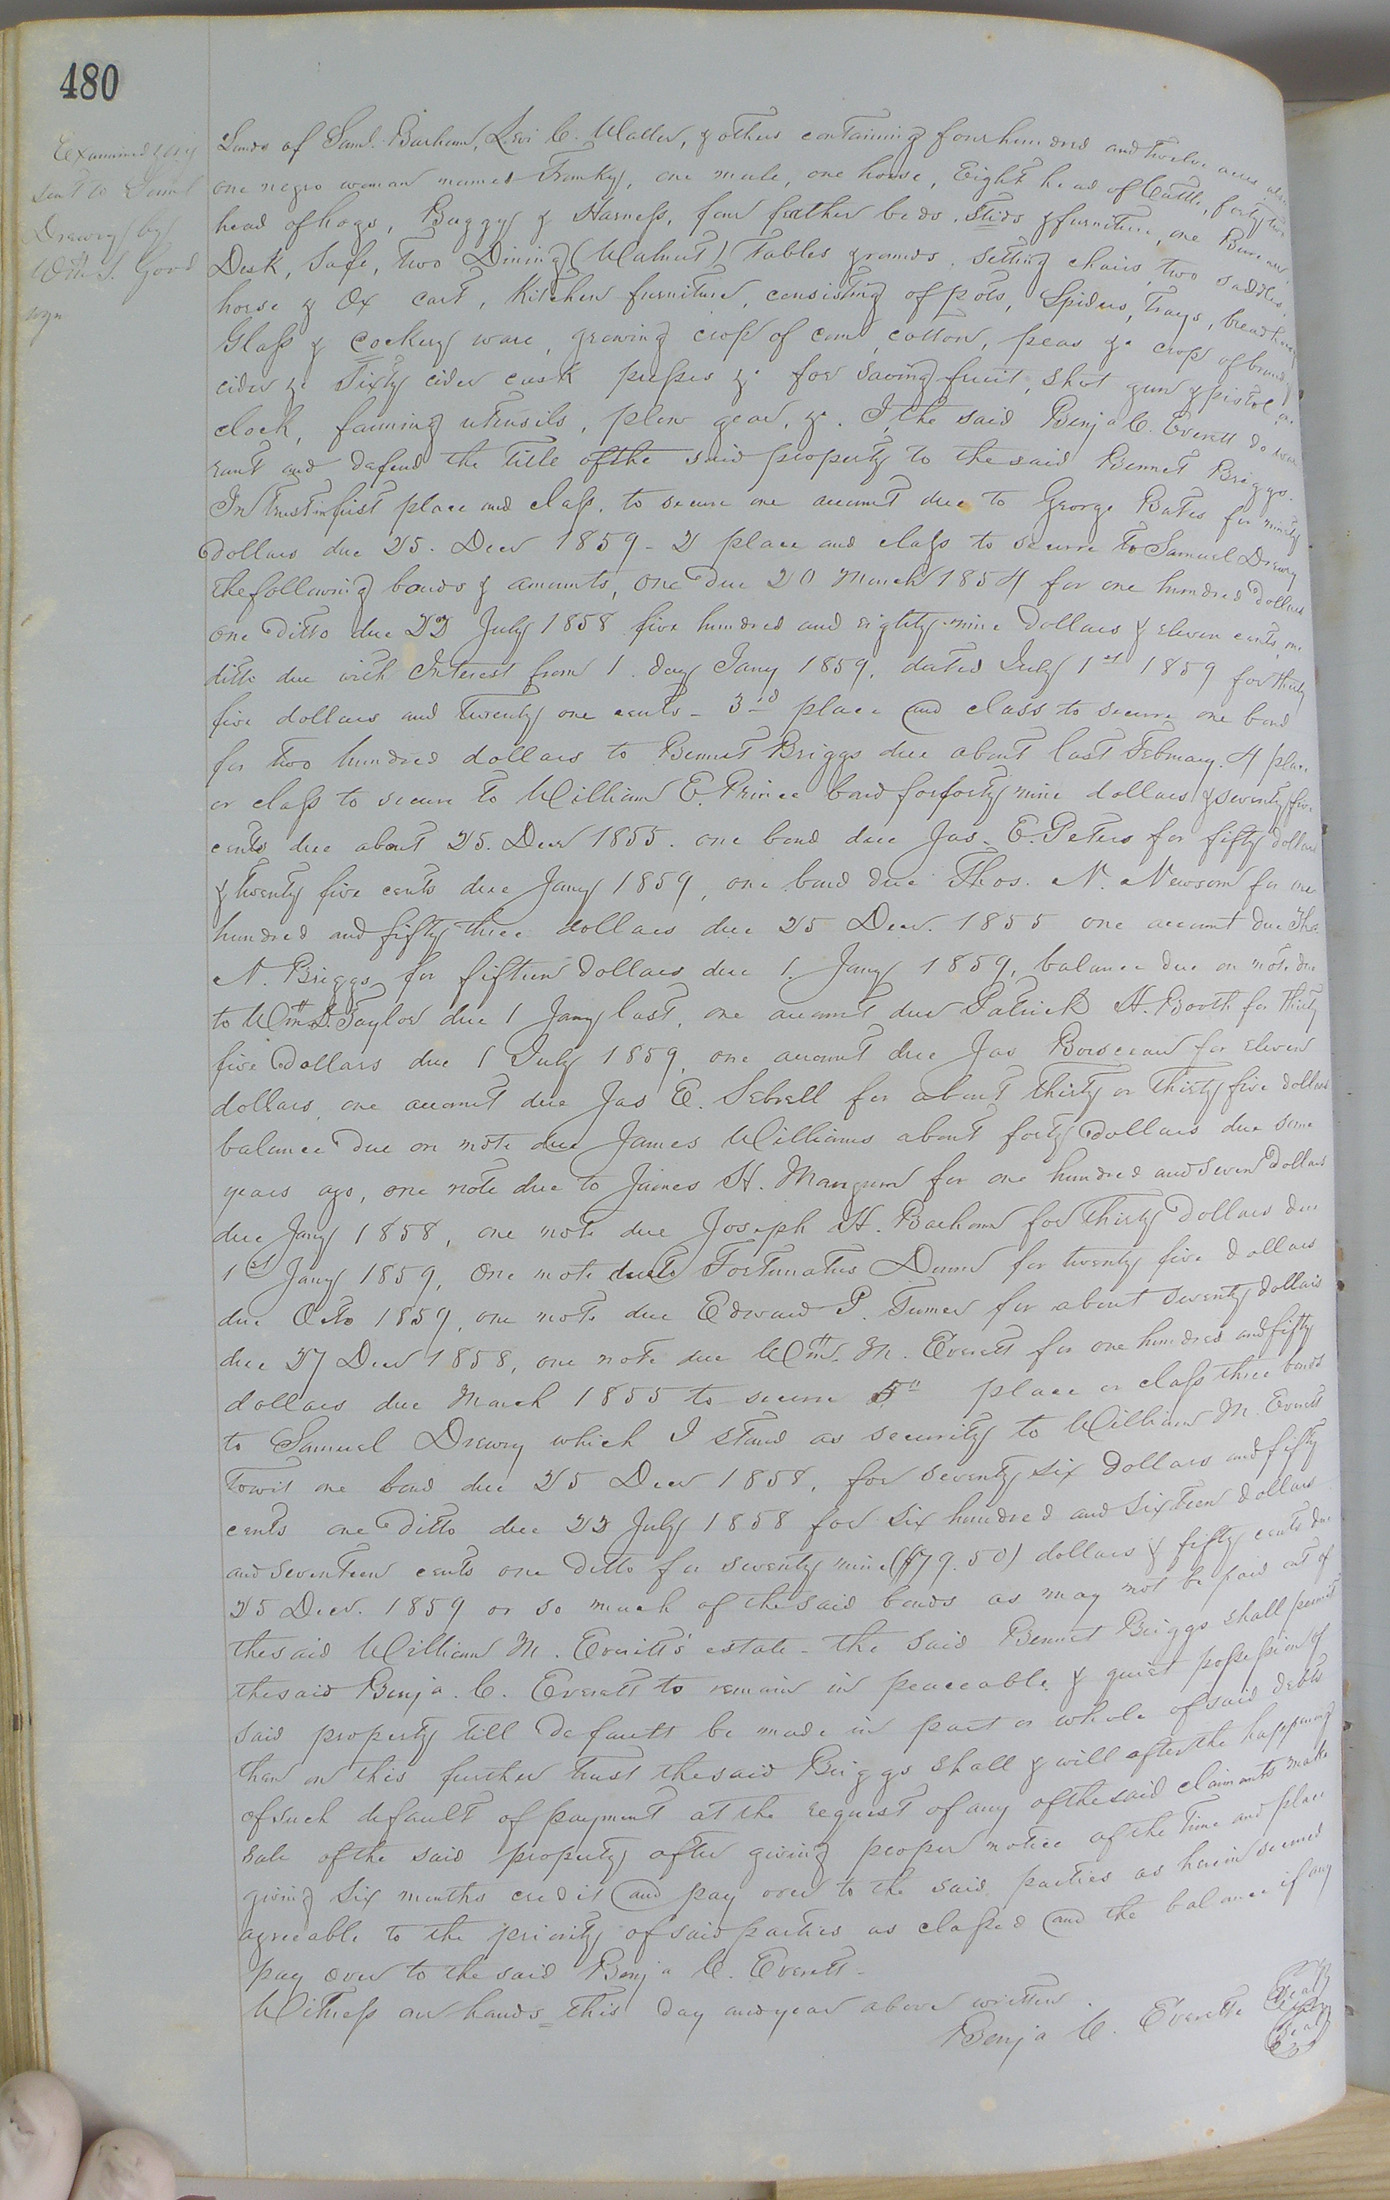 480
Examined & org
sent to Saml
Drewry by
Wm S. Good
wyn
Lands of Saml. Barham, Levi C. Waller, & others containing four hundred and twelve acres also
one negro woman named Franky, one mule, one horse, Eight head of Cattle, forty two
head of hogs, Buggy & Harness, four feather beds, steds & furniture, one Bureau,
Desk, Safe, two Dining (Walnut) Tables & rounds, setting chairs, two saddles,
horse & Ox cart, Kitchen furniture, consisting of pots, Spiders, trays, bread
Glass & cockery ware, growing crop of corn, cotton, peas &c crop of brandy
cider &c Sixty cider cask presses &c for saving fruit, shot gun & pistol one
clock, farming utensils, plow gear, &c. I, the said Benja C. Everett do war
rant and defend the title of the said property to the said Bennet Briggs.
In trust in first place and class, to secure one account due to George Bates for ninety
dollars due 25. Decr 1859 - 2 place and class to secure to Samuel Drewry
the following bonds & amounts, one due 20 March 1854 for one hundred dollars
one Ditto due 22 July 1858 five hundred and eighty nine dollars & eleven cents, one
ditto due with Interest from 1. day Jany 1859, dated July 1st 1859 for thirty
five dollars and twenty one cents - 3rd place and class to secure one bond
for two hundred dollars to Bennet Briggs due about last February. 4 place
or class to secure to William E. Prince bond for forty nine dollars & seventy five
cents due about 25. Decr 1855. one bond due Jas. E. Peters for fifty dollars
& twenty five cents due Jany 1859, one bond due Thos. N. Newsom for one
hundred and fifty three dollars due 25 Decr. 1855 one account due Tho.
N. Briggs for fifteen dollars due 1. Jany 1859, balance due on note due
to Wm D. Taylor due 1 Jany last, one account due Patrick H. Booth for thirty
five Dollars due 1 July 1859, one account due Jas Boisseau for eleven
dollars, one account due Jas E. Sebrell for about thirty or thirty five dollars
balance due on note due James Williams about forty dollars due some
years ago, one note due to James H. Mangum for one hundred and seven Dollars
due Jany 1858, one note due Joseph H. Barham for thirty Dollars due
1st Jany 1859, One note due to Fortunatus Drewer for twenty five dollars
due Octo 1859, one note due Edward P. Turner for about seventy dollars
due 27 Decr 1858, one note due Wm. M. Everett for one hundred and fifty
dollars due March 1855 to secure 5th place or class three bonds
to Samuel Drewry which I stand as security to William M. Everett
Towit one bond due 25 Decr 1858, for seventy six dollars and fifty
cents one Ditto due 22 July 1858 for six hundred and sixteen dollars
and seventeen cents one Ditto for seventy nine ($79.50) dollars & fifty cents due
25 Decr. 1859 or so much of the said bonds as may not be paid out of
the said William M. Everitt's estate - the said Bennet Briggs shall permit
the said Benja. C. Everett to remain in peaceable & quiet possession of
said property till default be made in part or whole of said debts
then on this further trust the said Briggs shall & will after the happening
of such default of payment at the request of any of the said claimants make
sale of the said property after giving proper notice of the time and place
giving six months credit and pay over to the said parties as herein secured
agreeable to the priority of said parties as classed and the balance if any
pay over to the said Benja C. Everett -
Witness our hands this day and year above written.
Benja C. Everette Seal
Seal